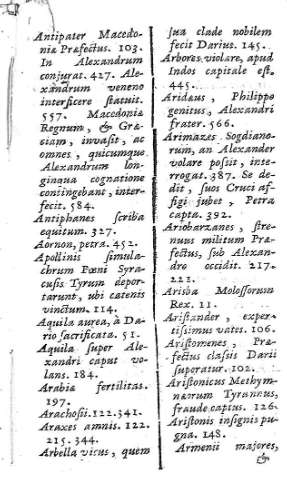 Antipater Macedo-
niæ Præfectus. 103.
In Alexandrum
conjurat. 427. Ale-
xandrum veneno
interficere statuit.
557. Macedoniæ
Regnum, & Græ-
ciam, invasit, ac
omnes, quicumque
Alexandrum lon-
ginqua cognatione
contingebant, inter-
fecit. 584.
Antiphanes scriba
equitum. 327.
Aornon, petra. 452.
Apollinis simula-
chrum Pœni Syra-
cusis Tyrum depor-
tarunt, ubi catenis
vinctum. 114.
Aquila aurea, à Da-
rio sacrificata. 51.
Aquila super Ale-
xandri caput vo-
lans. 184.
Arabiæ fertilitas.
197.
Arachosii. 122. 341.
Araxes amnis. 122.
215. 344.
Arbella vicus, quem
sua clade nobilem
fecit Darius. 145.
Arbores violare, apud
Indos capitale est.
445.
Aridæus, Philippo
genitus, Alexandri
frater. 566.
Arimazes Sogdiano-
rum, an Alexander
volare possit, inte-
rrogat. 387. Se de-
dit, suos Cruci af-
figi jubet, Petra
capta. 392.
Ariobarzanes, stre-
nuus militum Præ-
fectus, sub Alexan-
dro occidit. 217.
222.
Arisba Molossorum
Rex. 11.
Aristander, exper-
tissimus vates. 106.
Aristomenes, Præ-
fectus classis Darii
superatur. 102.
Aristonicus Methym-
næorum Tyrannus,
fraude captus. 126.
Aristonis insignis pu-
gna. 148.
Armenii majores,
&